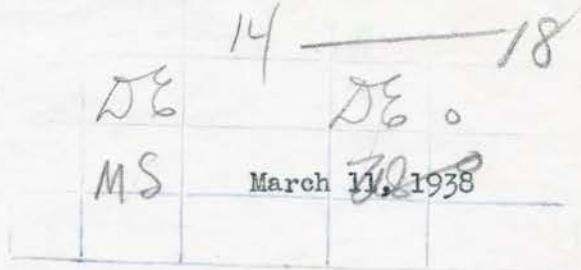 14 — 18
DE DE o
MS
March 11, 1938